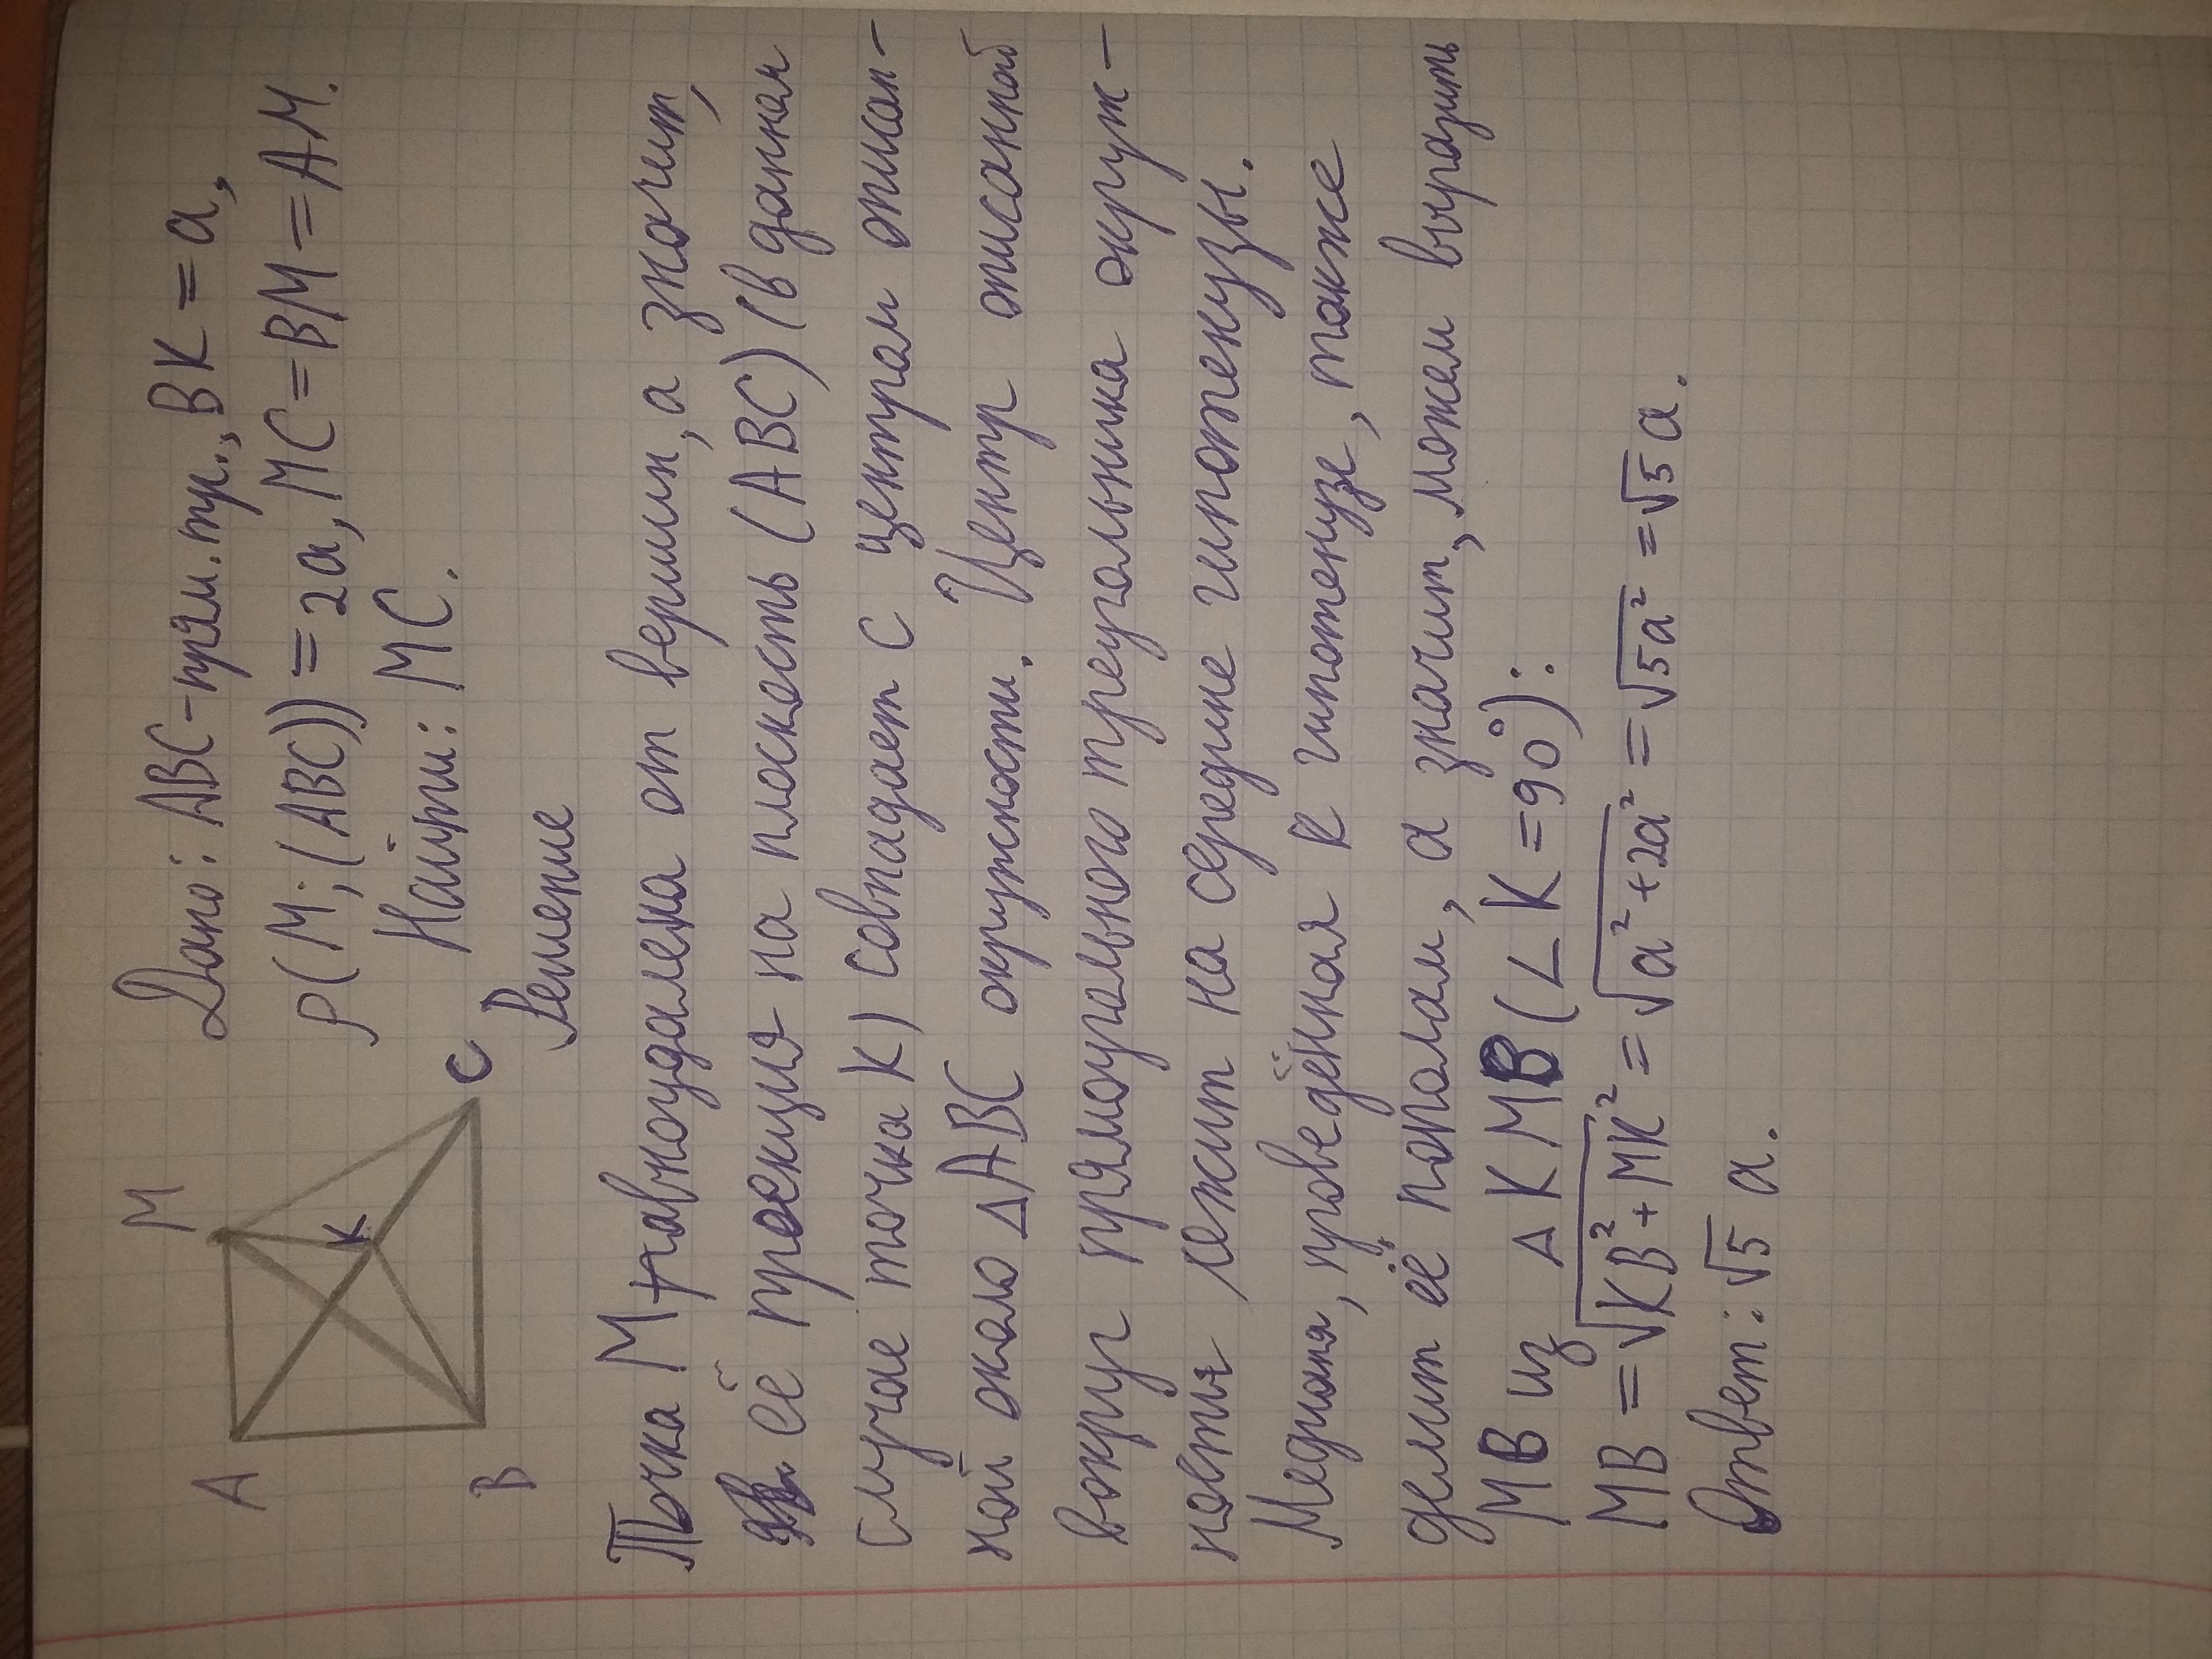 M
A
K
B
C
Дано: ABC-прям.тр., BK=a,
ρ(M;(ABC))=2a, MC=BM=AM.
Найти: MC.
Решение
Точка M равноудалена от вершин, а значит,
её проекция на плоскость (ABC) (в данная
случае точка K) совпадает с центрам описан-
ной около ΔABC окружности. Центр описанной
вокруг прямоугольного треугольника окруж-
ности лежит на середине гипотенузы.
Медиана, проведённая к гипотенузе, также
делит её пополам, а значит, можем выразить
MB из ΔKMB (∠K=90°):
MB = √KB²+MK² = √a²+2a² = √5a² = √5 a.
Ответ: √5 a.